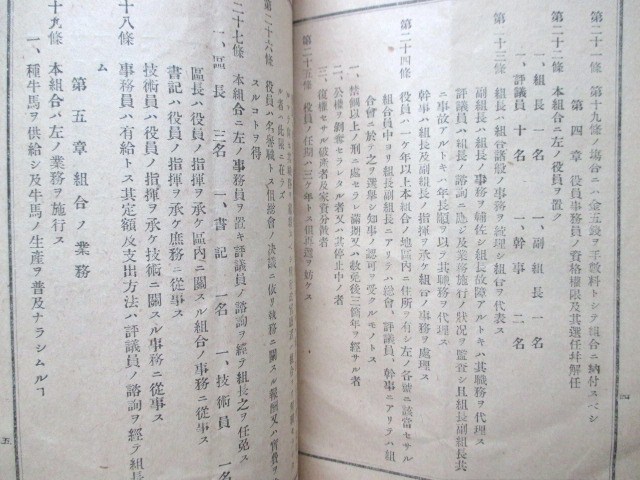 第二十一條 第十九條ノ場合ニハ金五錢ヲ手數料トシテ組合ニ納付スベシ
第四章 役員事務員ノ資格權限及其選任幷解任
第二十二條 本組合ニ左ノ役員ヲ置ク
一、組長 一名 一、副組長 一名
一、評議員 十名 一、幹事 二名
第二十三條 組長ハ組合諸般ノ事務ヲ統理シ組合ヲ代表ス
副組長ハ組長ノ事務ヲ輔佐シ組長故障アルトキハ其職務ヲ代理ス
評議員ハ組長ノ諮問ニ應シ及業務施行ノ狀況ヲ監査シ且組長副組長共
ニ事故アルトキハ年長順ヲ以テ其職務ヲ代理ス
幹事ハ組長及副組長ノ指揮ヲ承ケ組合ノ事務ヲ處理ス
第二十四條 役員ハ一ケ年以上本組合ノ地區內ニ住所ヲ有シ左ノ各號ニ該當セサル
組合員中ヨリ組長副組長ニアリテハ總會、評議員、幹事ニアリテハ組
合會ニ於テ之ヲ選擧シ知事ノ認可ヲ受クルモノトス
一、禁錮以上ノ刑ニ處セラレ滿期又ハ赦免後三箇年ヲ經サル者
二、公權ヲ剝奪セラレタル者又ハ其停止中ノ者
三、復權セサル破產者及家資分散者
第二十五條 役員ノ任期ハ三ケ年トス但再選ヲ妨ケス
四
ル者ノ任期ニ在ラズ
第二十六條 役員ハ名譽職トス但總會ノ決議ニ依リ執務ニ關スル報酬又ハ實費ヲ
スルコトヲ得
二十七條 本組合ニ左ノ事務員ヲ置キ評議員ノ諮問ヲ經テ組長之ヲ任免ス
一、區長 三名 一、書記 一名 一、技術員 一名
區長ハ役員ノ指揮ヲ承ケ區內ニ關スル組合ノ事務ニ從事ス
書記ハ役員ノ指揮ヲ承ケ庶務ニ從事ス
技術員ハ役員ノ指揮ヲ承ケ技術ニ關スル事務ニ從事ス
十八條 事務員ハ有給トス其定額及支出方法ハ評議員ノ諮問ヲ經テ組長
ム
第五章 組合ノ業務
十九條 本組合ハ左ノ業務ヲ施行ス
一、種牛馬ヲ供給シ及牛馬ノ生產ヲ普及ナラシムルヿ
五